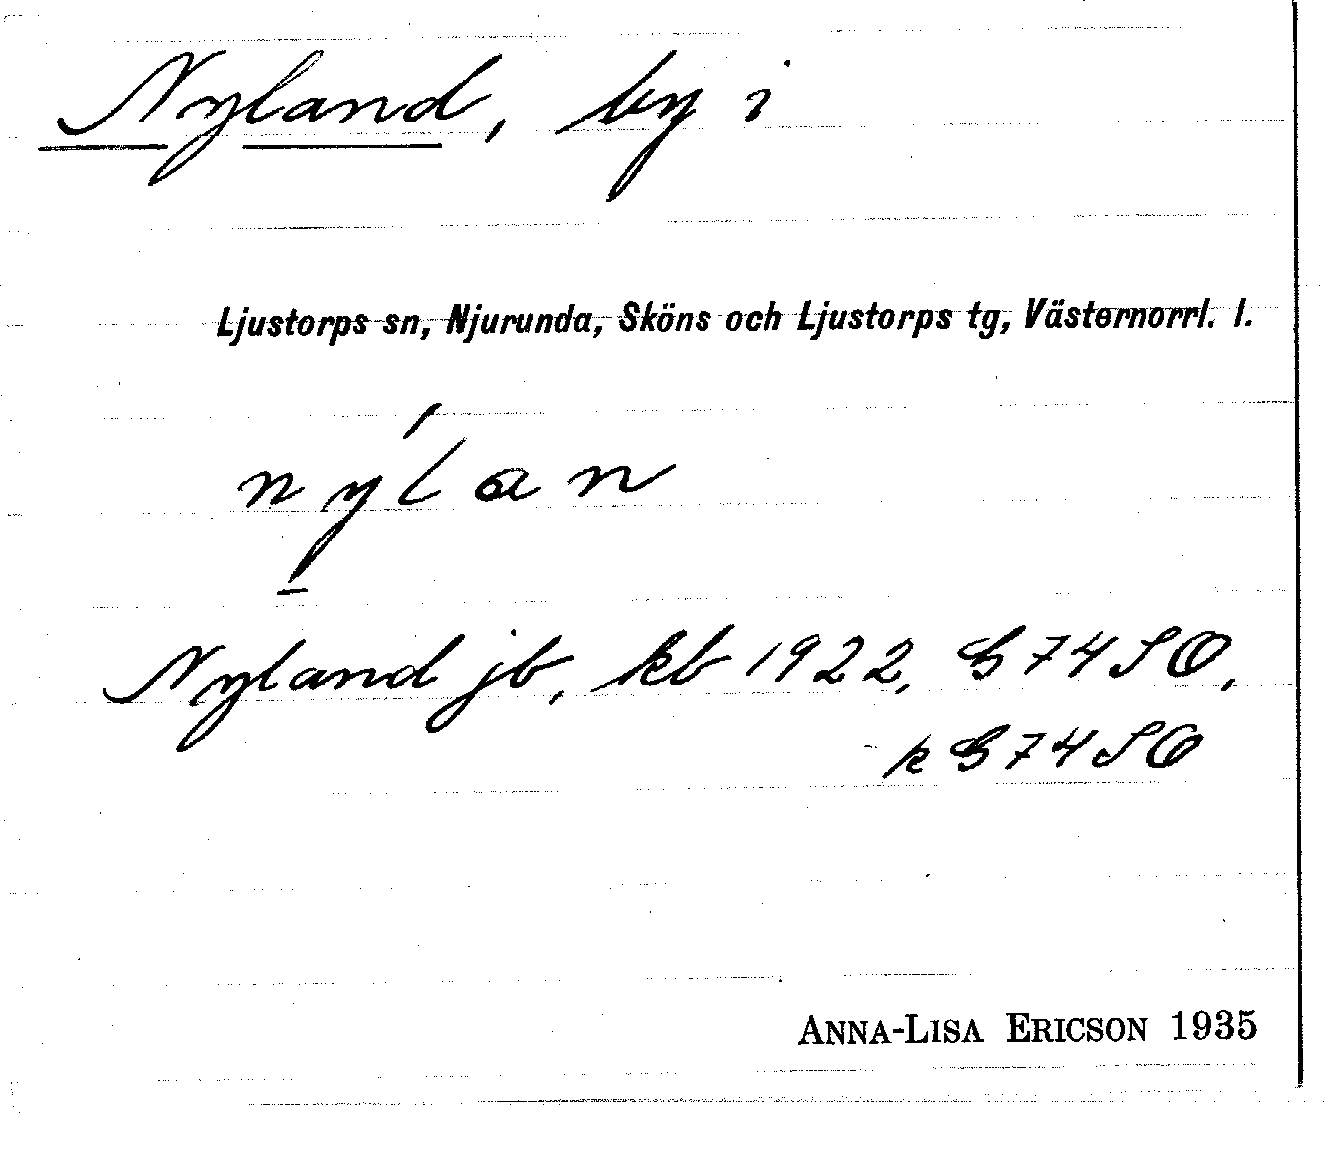 Nyland, by i
Ljustorps sn, Njurunda, Sköns och Ljustorps tg, Västernorrl. l.
nylan
Nyland jb, kb 1922, G 74 SO,
k G 74 SO
ANNA-LISA ERICSON 1935